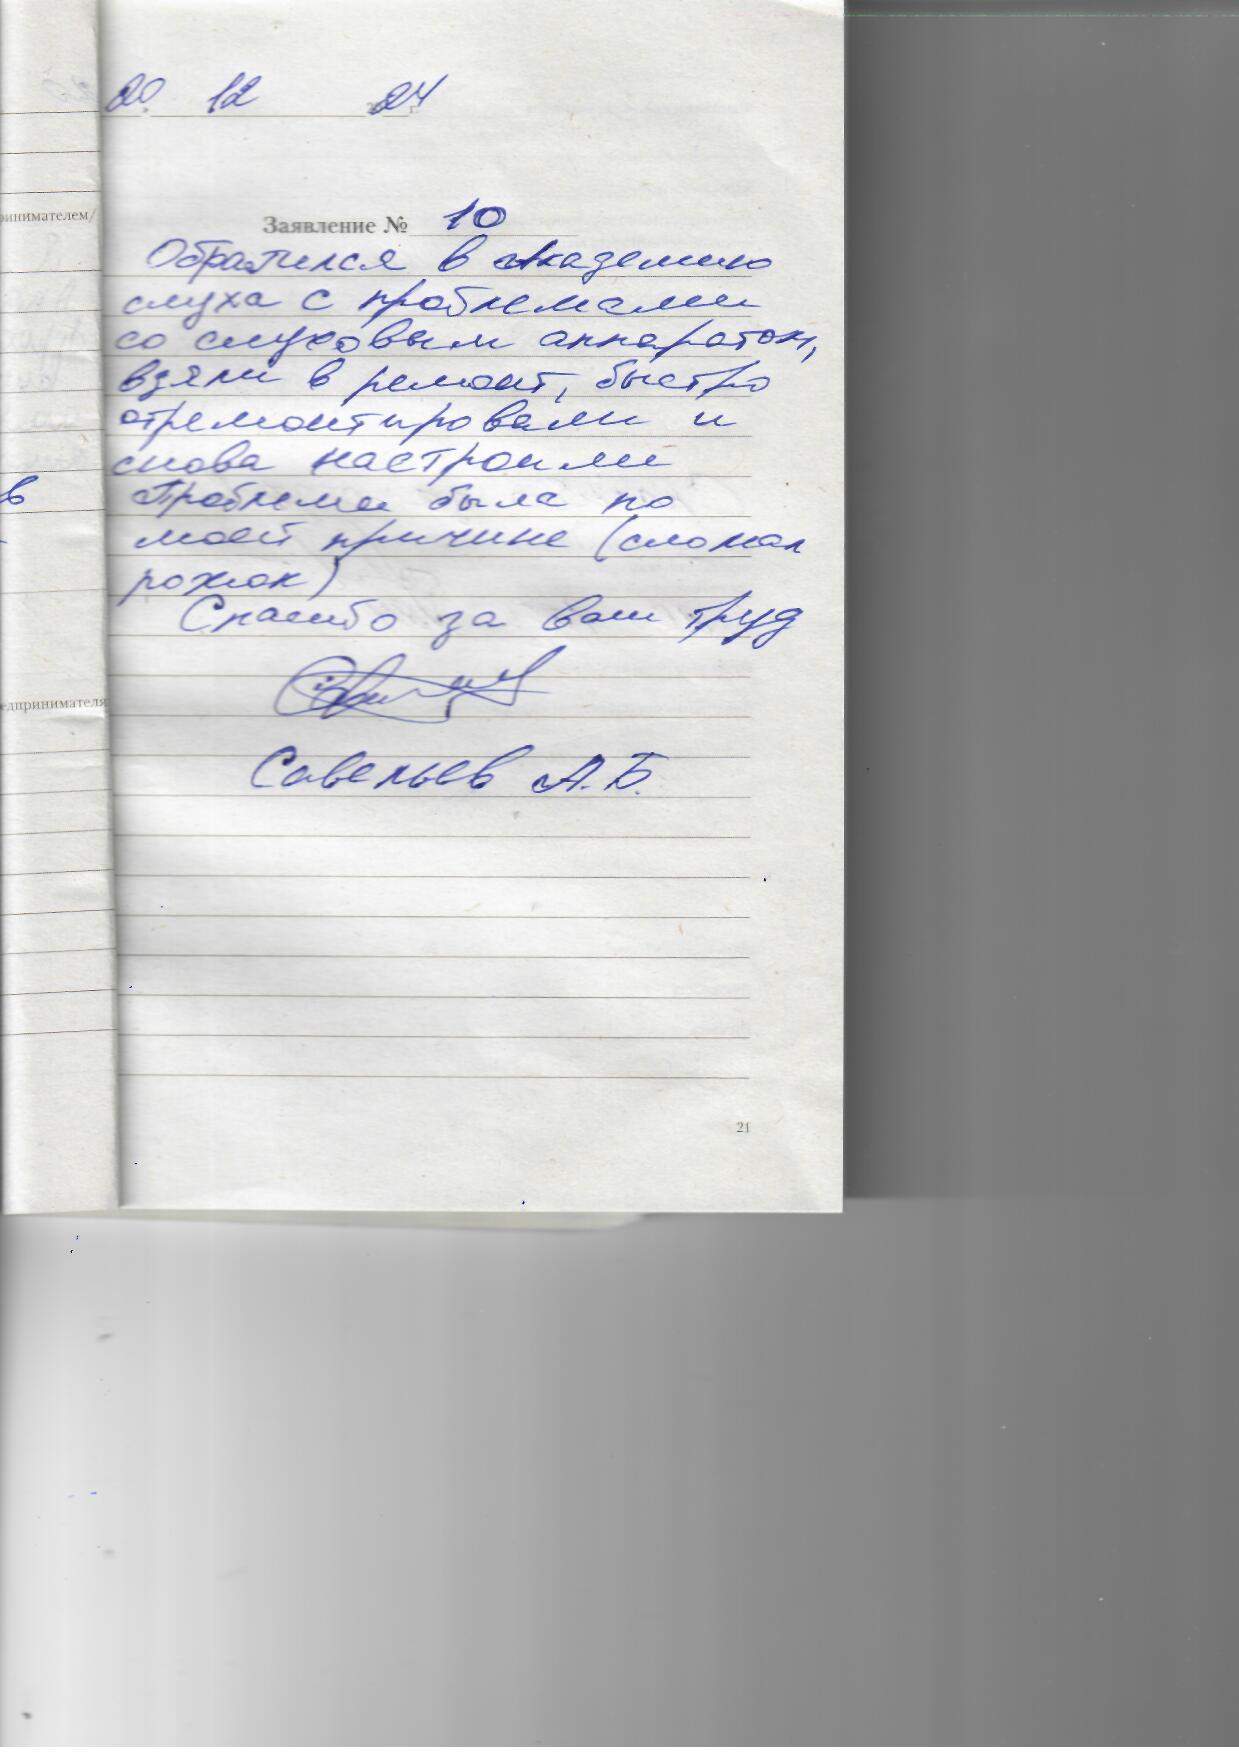 20 12 2024 г.
Заявление № 10
Обратился в Академию
слуха с проблемами
со слуховым аппаратом,
взяли в ремонт, быстро
отремонтировали и
снова настроили
Проблема была по
моей причине (сломал
рожок)
Спасибо за ваш труд
Савельев А.Б.
21
ринимателем/
в
едпринимателя